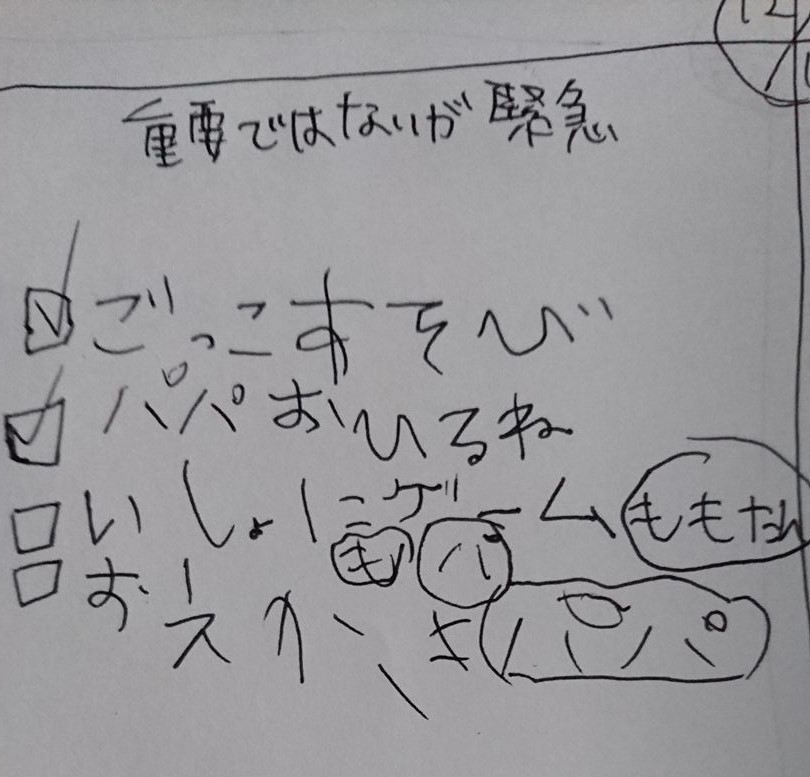 12/
重要ではないが緊急
ごっこすそび
パパおひるね
いしょにゲーム ももたん
も パ
おえかき パパ